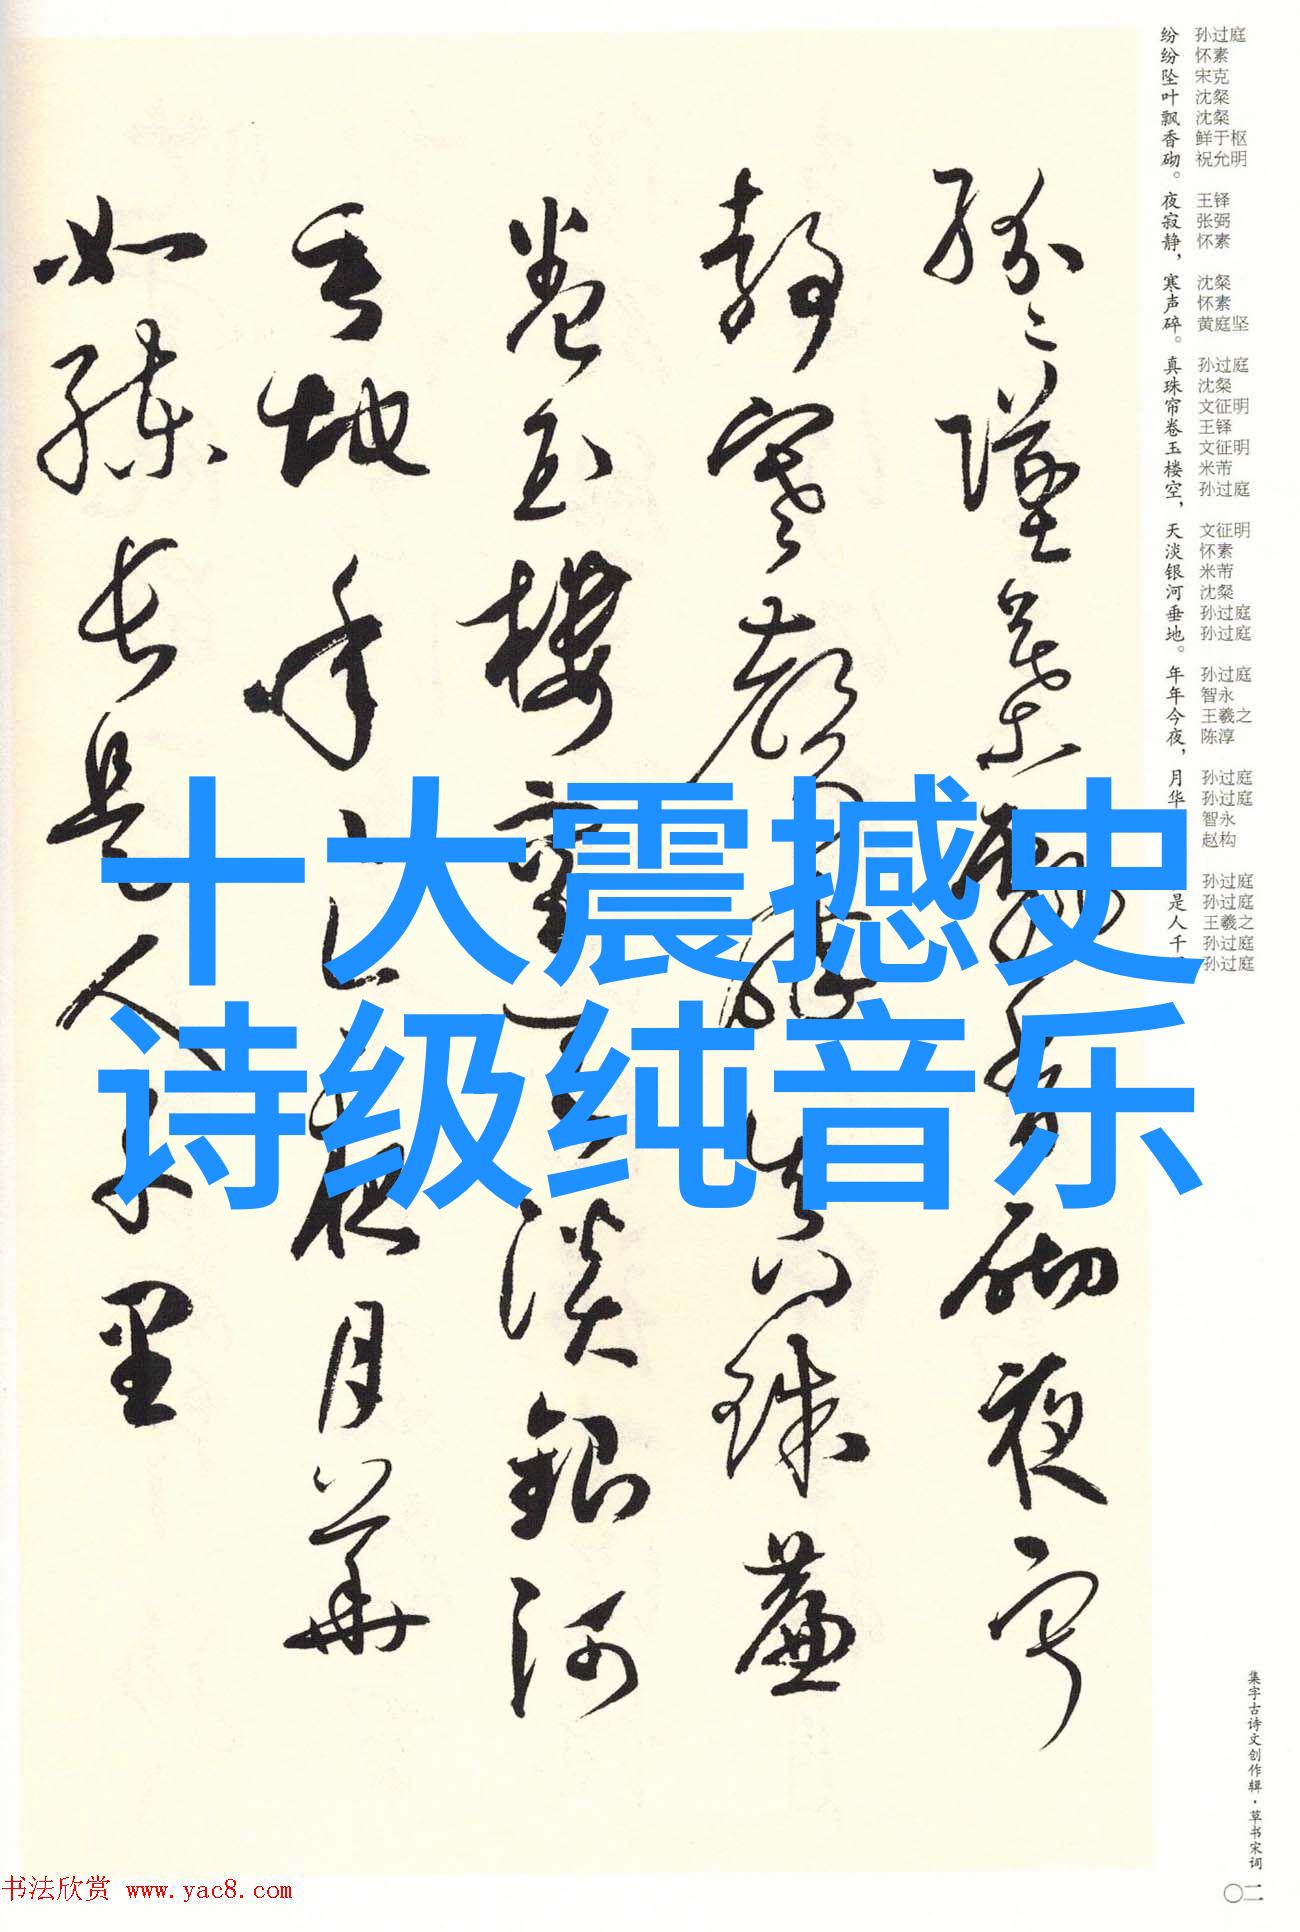 纷纷坠叶飘香砌。夜寂静，寒声碎。真珠帘卷玉楼空，天淡银河垂地。年年今夜，月华
是人千
孙过庭
怀素
宋克
沈粲
沈粲
鲜于枢
祝允明
王铎
张弼
怀素
沈粲
怀素
黄庭坚
孙过庭
沈粲
文征明
王铎
文征明
米芾
孙过庭
文征明
怀素
米芾
沈粲
孙过庭
孙过庭
孙过庭
智永
王羲之
陈淳
孙过庭
孙过庭
智永
赵构
孙过庭
孙过庭
王羲之
孙过庭
孙过庭
纷纷坠叶飘香砌夜寂
静寒声碎真珠帘
卷玉楼空天淡银河
垂地年年今夜月华
如练长是人千里
十大震撼史
诗级纯音乐
集字古诗文创作辑·草书宋词
〇二
书法欣赏 www.yac8.com